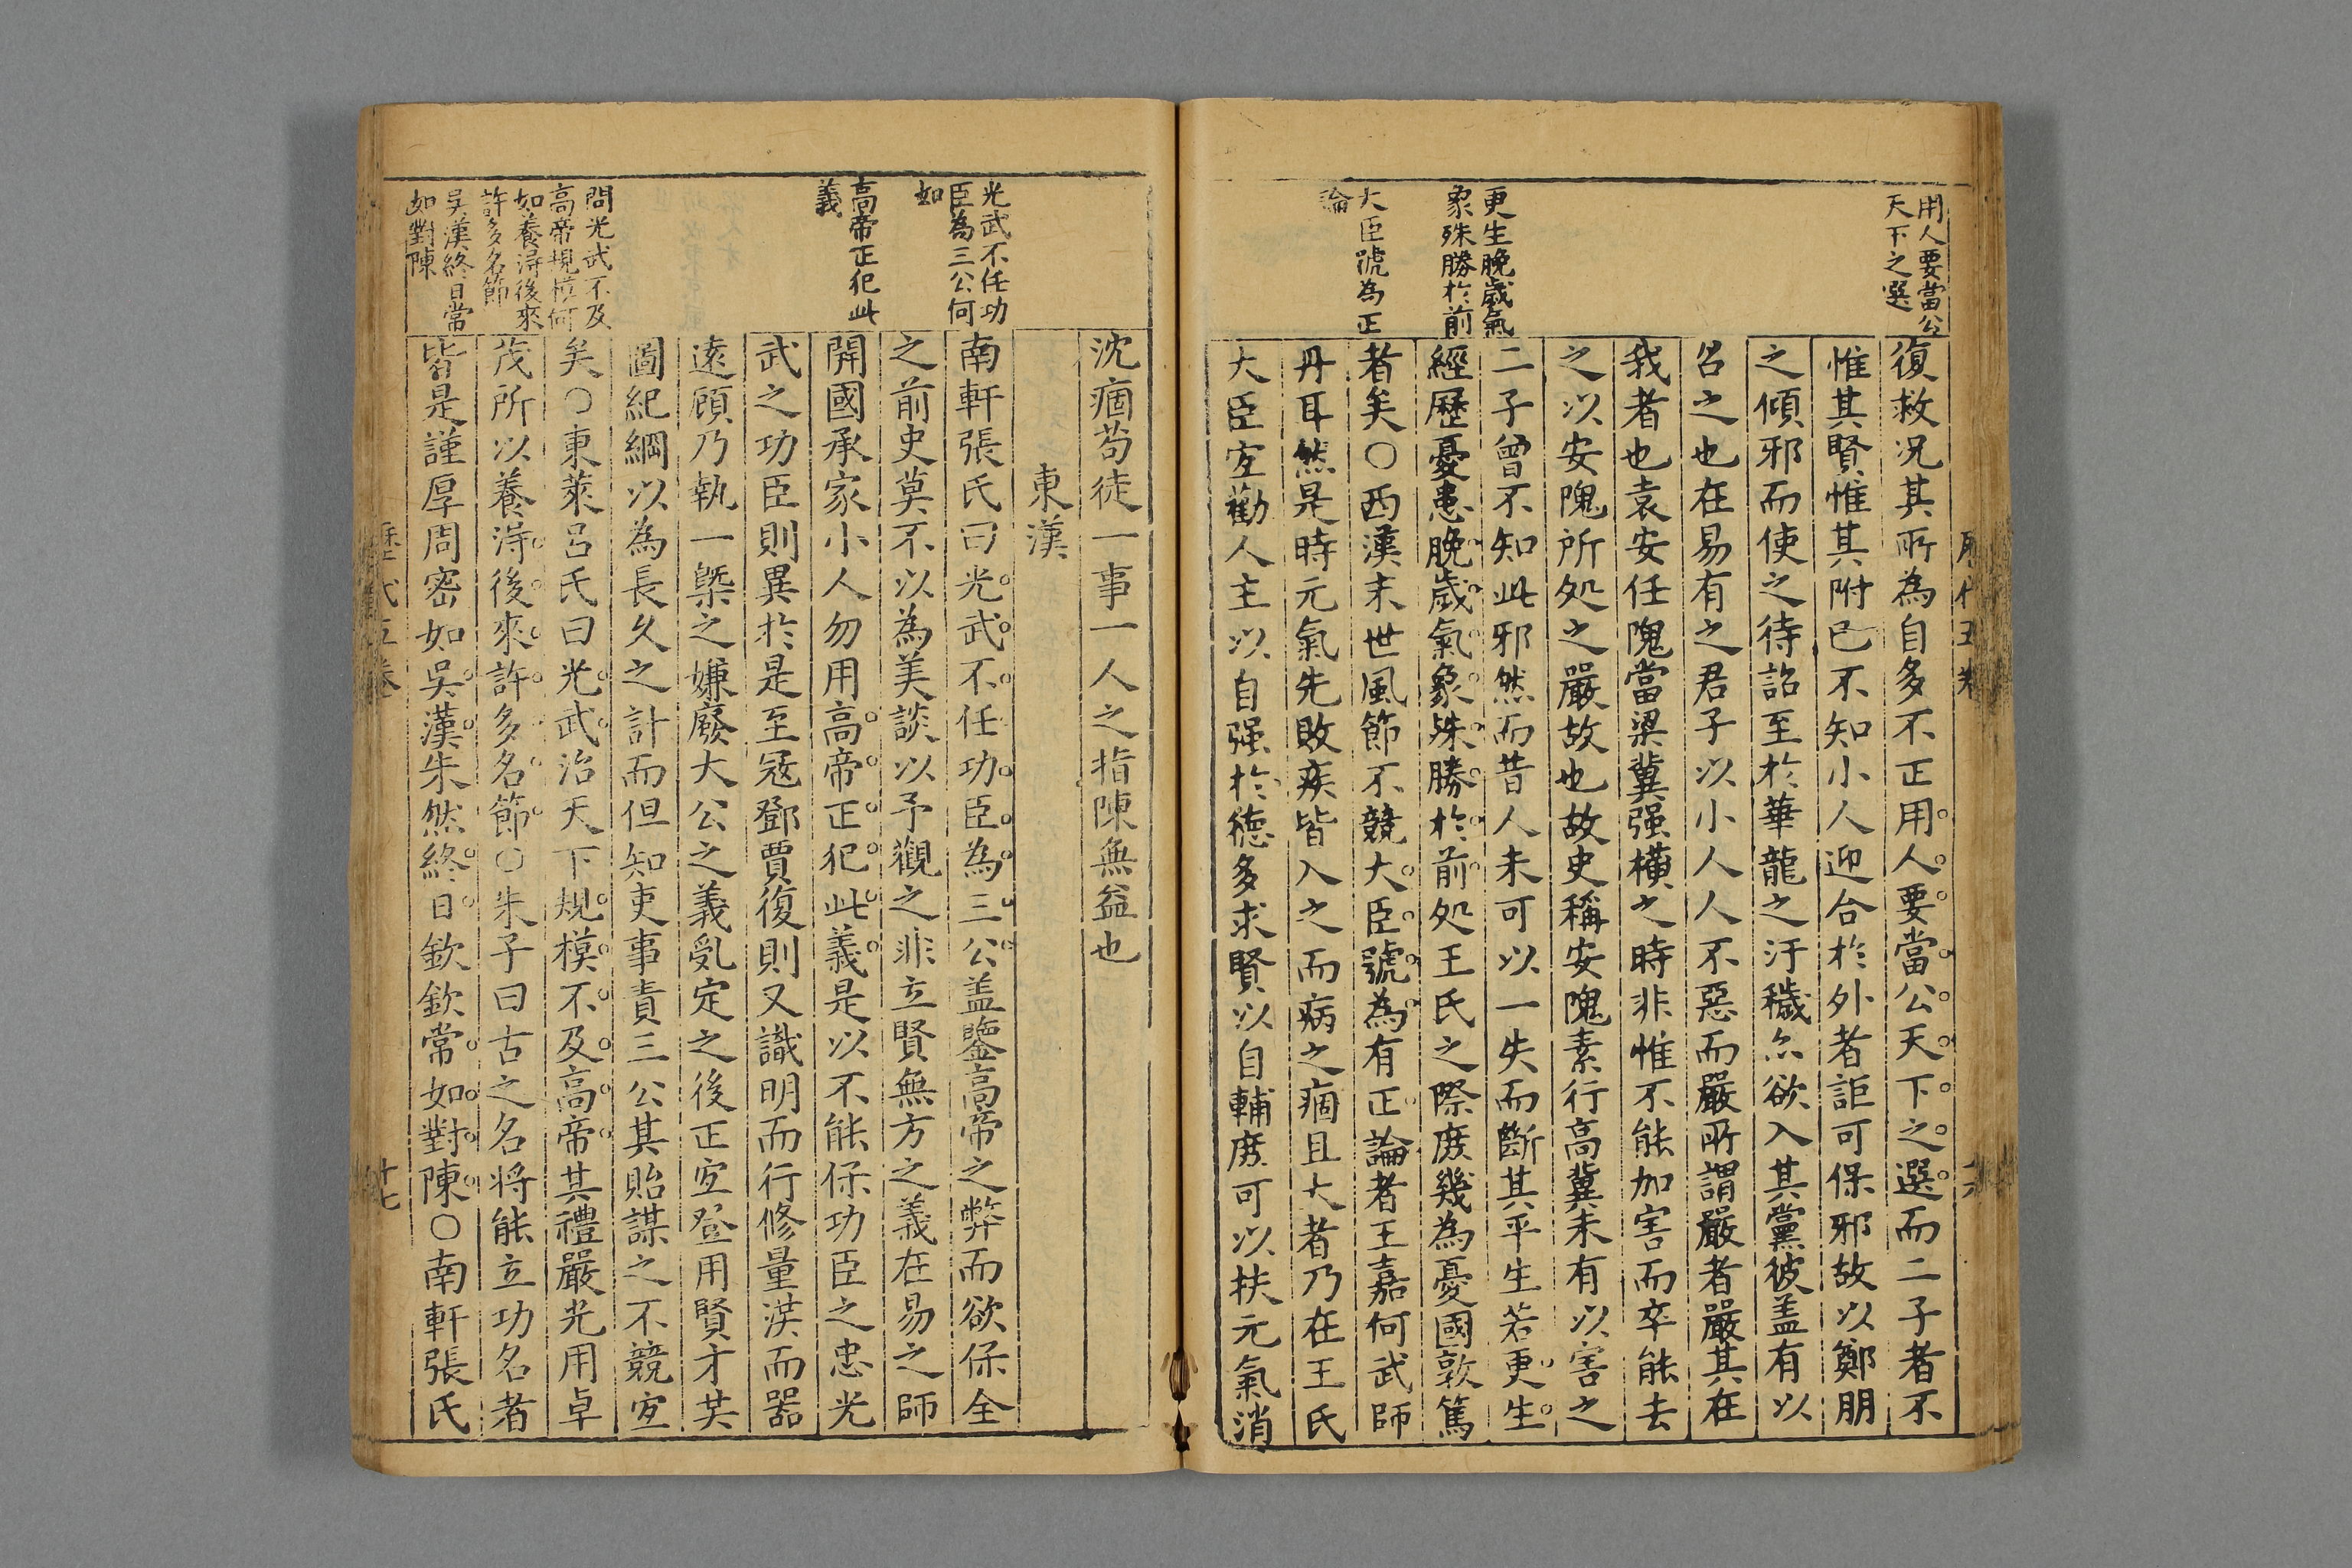 用人要當公
天下之選
更生晚歲氣
象殊勝於前
大臣號為正
論
復救况其所為自多不正用人要當公天下之選而二子者不
惟其賢惟其附已不知小人迎合於外者詎可保邪故以鄭朋
之傾邪而使之待詔至於華龍之汙穢亦欲入其黨彼盖有以
召之也在易有之君子以小人人不惡而嚴所謂嚴者嚴其在
我者也袁安任隗當梁冀强横之時非惟不能加害而卒能去
之以安隗所処之嚴故也故史稱安隗素行高冀未有以害之
二子曾不知此邪然而昔人未可以一失而斷其平生若更生
經歷憂患晚歲氣象殊勝於前処王氏之際庶幾為憂國敦篤
者矣○西漢末世風節不競大臣號為有正論者王嘉何武師
丹耳然是時元氣先敗疾皆入之而病之痼且大者乃在王氏
大臣宜勸人主以自强於德多求賢以自輔庶可以扶元氣消
光武不任功
臣為三公何
如
高帝正犯此
義
問光武不及
高帝規模何
如養淂後來
許多名節
吳漢終日常
如對陳
沈痼苟徒一事一人之指陳無益也
東漢
南軒張氏曰光武不任功臣為三公盖鑒高帝之弊而欲保全
之前史莫不以為美談以予觀之非立賢無方之義在易之師
開國承家小人勿用高帝正犯此義是以不能保功臣之忠光
武之功臣則異於是至冦鄧賈復則又識明而行修量洪而器
遠顧乃執一槩之嫌廢大公之義乱定之後正宜登用賢才共
圖紀綱以為長久之計而但知吏事責三公其貽謀之不競宜
矣○東萊呂氏曰光武治天下規模不及高帝其禮嚴光用卓
茂所以養淂後來許多名節○朱子曰古之名将能立功名者
皆是謹厚周密如吳漢朱然終日欽欽常如對陳○南軒張氏
歷代五卷
十七